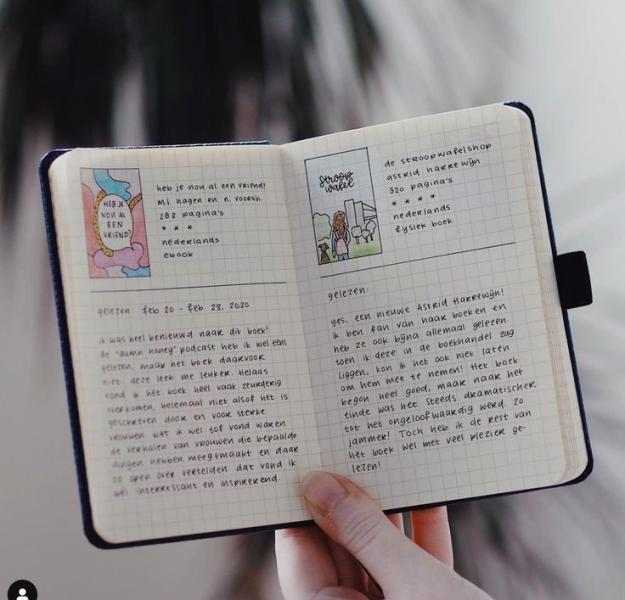 HEB JE
NOU AL
EEN
VRIEND?
heb je nou al een vriend?
m.l. hagen en n. voorsh.
288 pagina's
* * *
nederlands
ebook
gelezen feb 20 - feb 23, 2020
ik was heel benieuwd naar dit boek!
de "damn honey" podcast heb ik wel eens
gelezen, maar het boek daarvoor
niet. deze leek me leuker. Helaas
vond ik het boek heel vaak zeurderig
overkomen, helemaal niet alsof het is
geschreven door en voor sterke
vrouwen. wat ik wel tof vond waren
de verhalen van vrouwen die bepaalde
dingen hebben meegemaakt en daar
zo open over vertelden dat vond ik
wel interessant en inspirerend.
stroop
wafel
de stroopwafelshop
astrid harrewijn
320 pagina's
* * * *
nederlands
fysiek boek
gelezen:
yes, een nieuwe Astrid Harrewijn!
ik ben fan van haar boeken en
heb ze ook bijna allemaal gelezen.
toen ik deze in de boekhandel zag
liggen, kon ik het ook niet laten
om hem mee te nemen! Het boek
begon heel goed, maar naar het
einde was het steeds dramatischer,
tot het ongeloofwaardig werd. zo
jammer! Toch heb ik de rest van
het boek wel met veel plezier ge-
lezen!